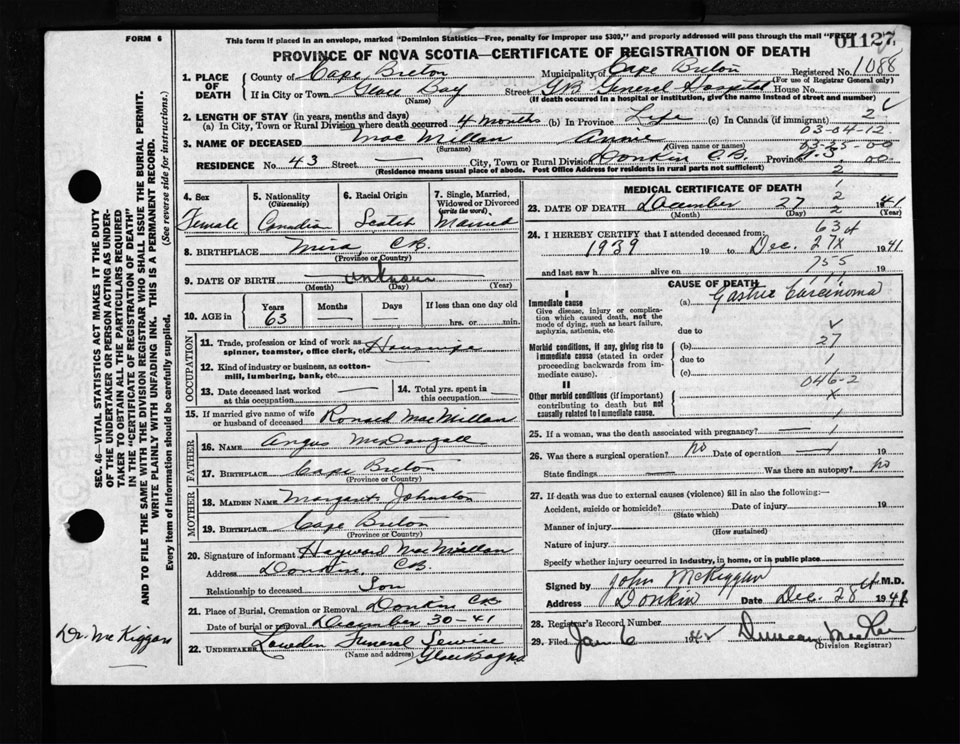 FORM 6
This form if placed in an envelope, marked "Dominion Statistics—Free, penalty for improper use $300," and properly addressed will pass through the mail "FREE"
01127
PROVINCE OF NOVA SCOTIA—CERTIFICATE OF REGISTRATION OF DEATH
1. PLACE OF DEATH
County of Cape Breton Municipality of Cape Breton Registered No. 1088
(For use of Registrar General only)
If in City or Town Glace Bay Street GB General Hospital House No.
(Name) (If death occurred in a hospital or institution, give the name instead of street and number)
2. LENGTH OF STAY (in years, months and days)
(a) In City, Town or Rural Division where death occurred 4 months (b) In Province Life (c) In Canada (if immigrant) 2
03-04-12
3. NAME OF DECEASED Mac Millan Annie 03-23-00
(Surname) (Given name or names)
RESIDENCE No. 43 Street — City, Town or Rural Division Donkin C.B. Province N.S. 00
(Residence means usual place of abode. Post Office Address for residents in rural parts not sufficient) 2
4. Sex Female
5. Nationality (Citizenship) Canadian
6. Racial Origin Scotch
7. Single, Married, Widowed or Divorced (write the word) Married
8. BIRTHPLACE Mira, CB.
(Province or Country)
9. DATE OF BIRTH unknown
(Month) (Day) (Year)
10. AGE in Years 63 Months — Days — If less than one day old hrs. or min.
OCCUPATION
11. Trade, profession or kind of work as spinner, teamster, office clerk, etc. Housewife
12. Kind of industry or business, as cotton-mill, lumbering, bank, etc. —
13. Date deceased last worked at this occupation —
14. Total yrs. spent in this occupation —
15. If married give name of wife or husband of deceased Ronald MacMillan
FATHER
16. NAME Angus McDougall
17. BIRTHPLACE Cape Breton
(Province or Country)
MOTHER
18. MAIDEN NAME Margaret Johnston
19. BIRTHPLACE Cape Breton
(Province or Country)
20. Signature of informant Hayward MacMillan
Address Donkin, CB
Relationship to deceased Son
21. Place of Burial, Cremation or Removal Donkin CB
Date of burial or removal December 30-41
22. UNDERTAKER Lowden Funeral Service
(Name and address) Glace Bay NS
MEDICAL CERTIFICATE OF DEATH
23. DATE OF DEATH December 27 1941
(Month) (Day) (Year)
24. I HEREBY CERTIFY that I attended deceased from:
1939 19 to Dec. 27 1941
and last saw h alive on 19
CAUSE OF DEATH
I
Immediate cause
Give disease, injury or complication which caused death, not the mode of dying, such as heart failure, asphyxia, asthenia, etc.
(a) Gastric Carcinoma
due to
Morbid conditions, if any, giving rise to immediate cause (stated in order proceeding backwards from immediate cause).
(b) 27
due to 1
(c)
II
046-2
Other morbid conditions (if important) contributing to death but not causally related to immediate cause. x
25. If a woman, was the death associated with pregnancy?
26. Was there a surgical operation? no Date of operation — 19
State findings — Was there an autopsy? no
27. If death was due to external causes (violence) fill in also the following:—
Accident, suicide or homicide? Date of injury 19
(State which)
Manner of injury
(How sustained)
Nature of injury
Specify whether injury occurred in industry, in home, or in public place
Signed by John McKiggan M.D.
Address Donkin Date Dec. 28 1941
28. Registrar's Record Number
29. Filed Jan 6 1942 Duncan
(Division Registrar)
SEC. 46—VITAL STATISTICS ACT MAKES IT THE DUTY
OF THE UNDERTAKER OR PERSON ACTING AS UNDERTAKER TO OBTAIN ALL THE PARTICULARS REQUIRED
IN THE "CERTIFICATE OF REGISTRATION OF DEATH"
AND TO FILE THE SAME WITH THE DIVISION REGISTRAR WHO SHALL ISSUE THE BURIAL PERMIT.
WRITE PLAINLY WITH UNFADING INK. THIS IS A PERMANENT RECORD.
Every item of Information should be carefully supplied. (See reverse side for instructions.)
Dr. McKiggan